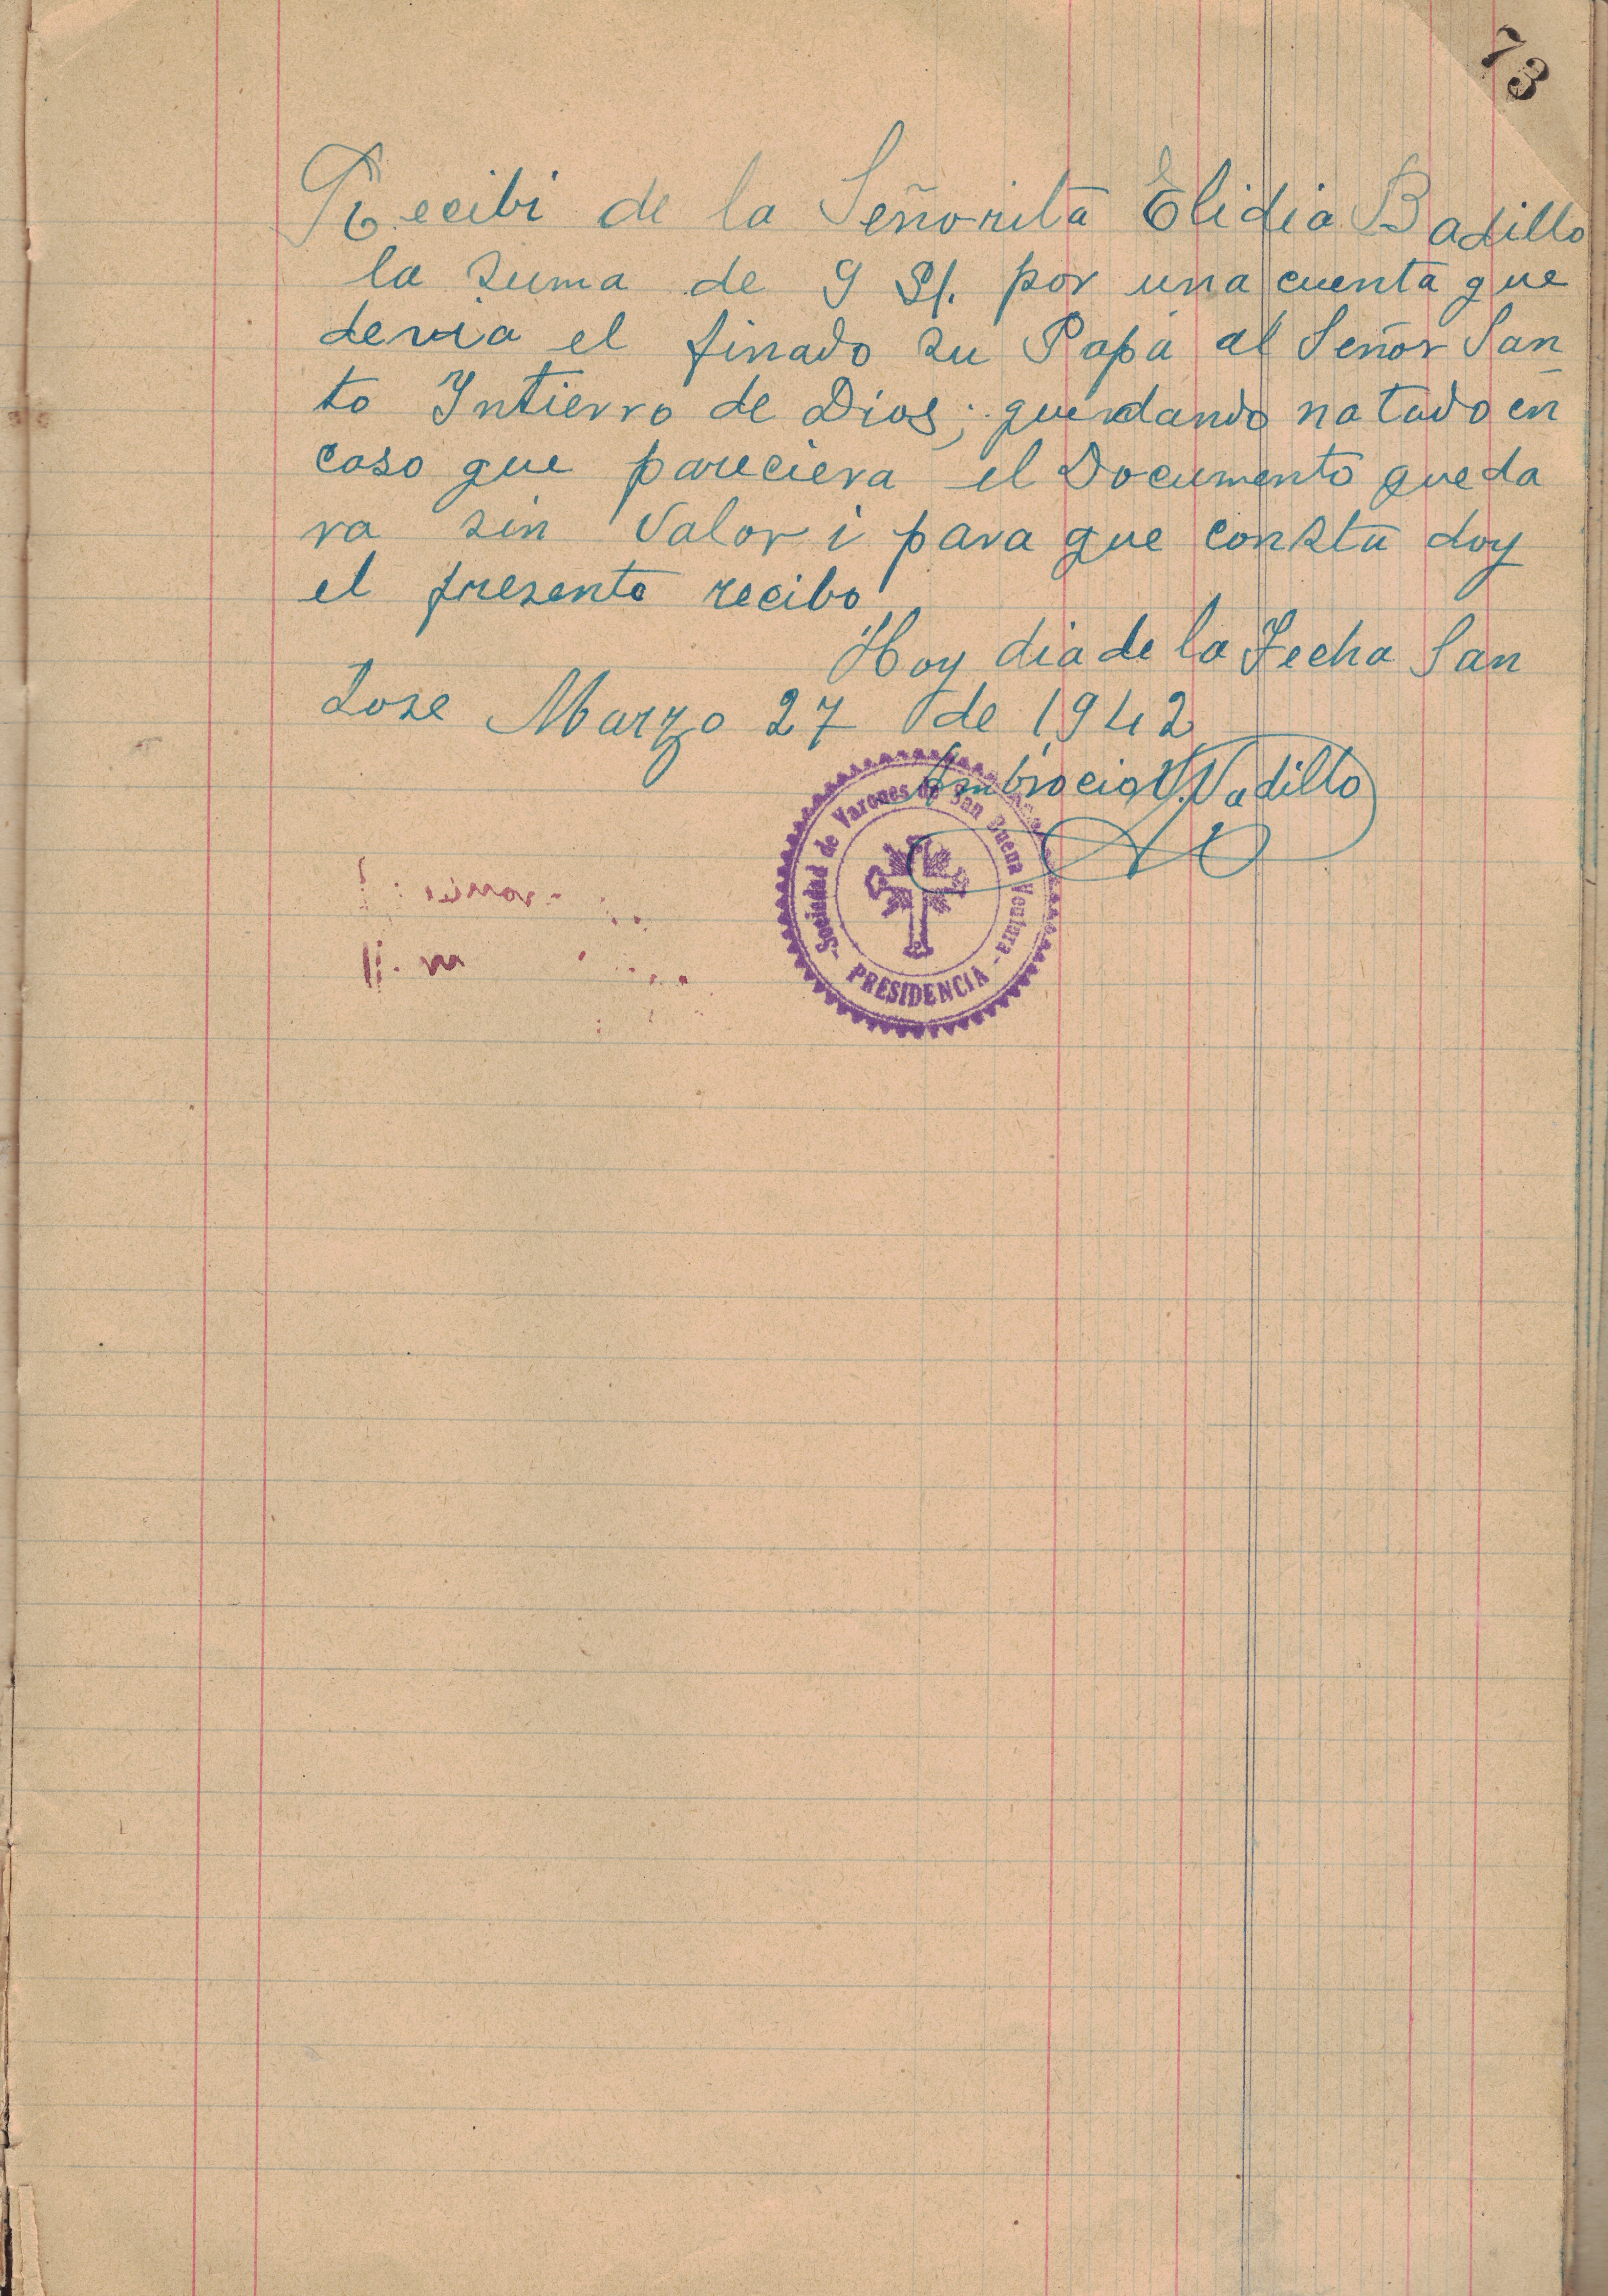 73
Recibi de la Señorita Elidia Badillo
la suma de 9 S/. por una cuenta que
devia el finado su Papá al Señor San
to Intierro de Dios; quendando notado en
caso que pareciera el Documento queda
ra sin valor i para que consta doy
el presente recibo
Hoy dia de la Fecha San
Jose Marzo 27 de 1942
Ambrocio V. Vadillo
-Sociedad de Varones de San Buena Ventura-
PRESIDENCIA